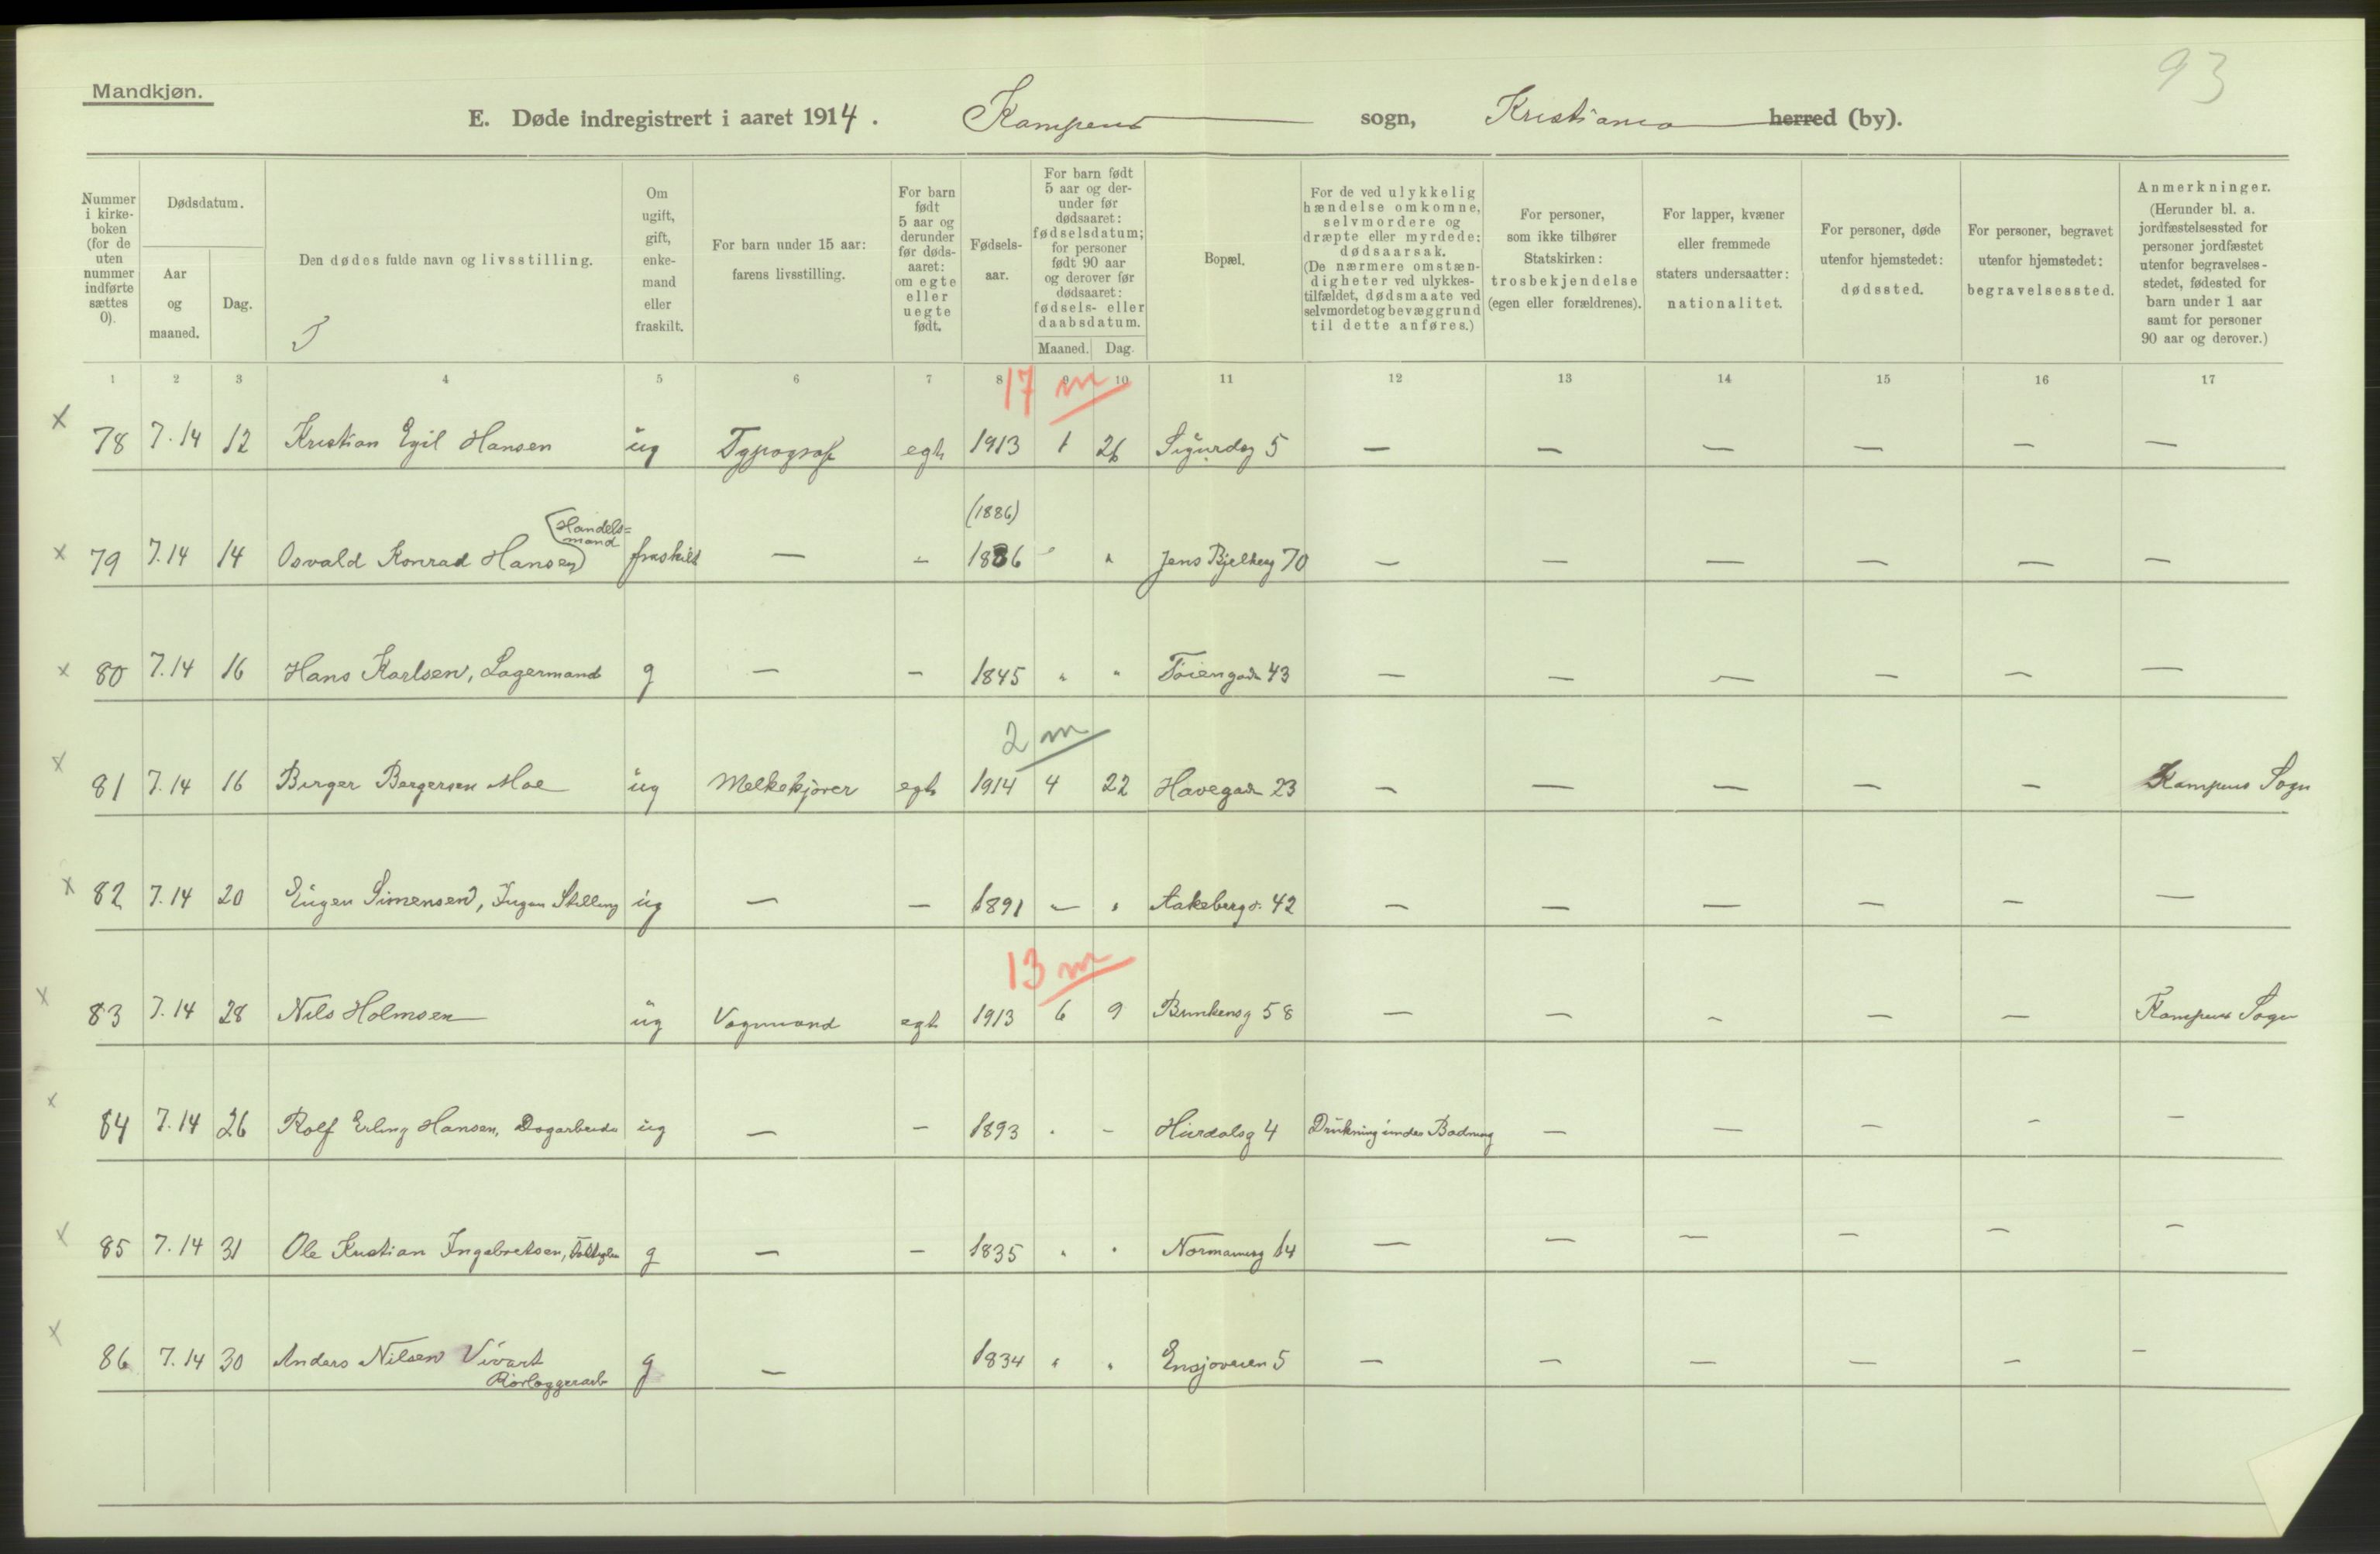 93
Mandkjøn.
E. Døde indregistrert i aaret 1914. Kampens sogn, Kristiania herred (by).
Nummer i kirke-boken (for de uten nummer indførte sættes 0).
Dødsdatum.
Aar og maaned.
Dag.
Den dødes fulde navn og livsstilling.
Om ugift, gift, enke-mand eller fraskilt.
For barn under 15 aar: farens livsstilling.
For barn født 5 aar og derunder før døds-aaret: om egte eller uegte født.
Fødsels-aar.
For barn født 5 aar og der-under før dødsaaret: fødselsdatum; for personer født 90 aar og derover før dødsaaret: fødsels- eller daabsdatum.
Maaned. Dag.
Bopæl.
For de ved ulykkelig hændelse omkomne, selvmordere og dræpte eller myrdede: dødsaarsak. (De nærmere omstæn-digheter ved ulykkes-tilfældet, dødsmaate ved selvmordet og bevæggrund til dette anføres.)
For personer, som ikke tilhører Statskirken: trosbekjendelse (egen eller forældrenes).
For lapper, kvæner eller fremmede staters undersaatter: nationalitet.
For personer, døde utenfor hjemstedet: dødssted.
For personer, begravet utenfor hjemstedet: begravelsessted.
Anmerkninger. (Herunder bl. a. jordfæstelsessted for personer jordfæstet utenfor begravelses-stedet, fødested for barn under 1 aar samt for personer 90 aar og derover.)
1 2 3 4 5 6 7 8 9 10 11 12 13 14 15 16 17
17 m
x 78 7.14 12 Kristian Egil Hansen ug Typograf egte 1913 1 26 Sigurdsg 5 — — — — — —
(1886)
x 79 7.14 14 Osvald Konrad Hansen (Handels=mand fraskilt — — 1886 " " Jens Bjelkesg 70 — — — — — —
x 80 7.14 16 Hans Karlsen, Lagermand g — — 1845 " " Tøiengade 43 — — — — — —
2 m
x 81 7.14 16 Birger Bergersen Moe ug Melkekjører egte 1914 4 22 Havegade 23 — — — — — Kampens Sogn
x 82 7.14 20 Eugen Simensen, Ingen Stilling ug — — 1891 — " Aakebergv. 42 — — — — — —
13 m
x 83 7.14 28 Nils Holmsen ug Vognmand egte 1913 6 9 58 — — — — — Kampens Sogn
x 84 7.14 26 Rolf Erling Hansen, Dagarbeider ug — — 1893 " — Hurdalsg 4 Drukning under Badning — — — — —
x 85 7.14 31 Ole Kristian Ingebretsen, g — — 1835 " " Normannsg 14 — — — — — —
x 86 7.14 30 Anders Nilsen g — 1834 " " Ensjøveien 5 — — — — — —
Rørlæggerarb